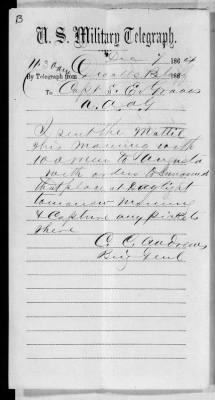 B
U. S. Military Telegraph.
Dec 7 1864
By Telegraph from 186
To Capt. E. Graves
A. A. A. G
I sent the Mattie
this morning with
100 men to Augusta
with orders to surround
that place at Daylight
tomorrow morning
& Capture any pickets
there
C. C. Andrews
Brig Genl